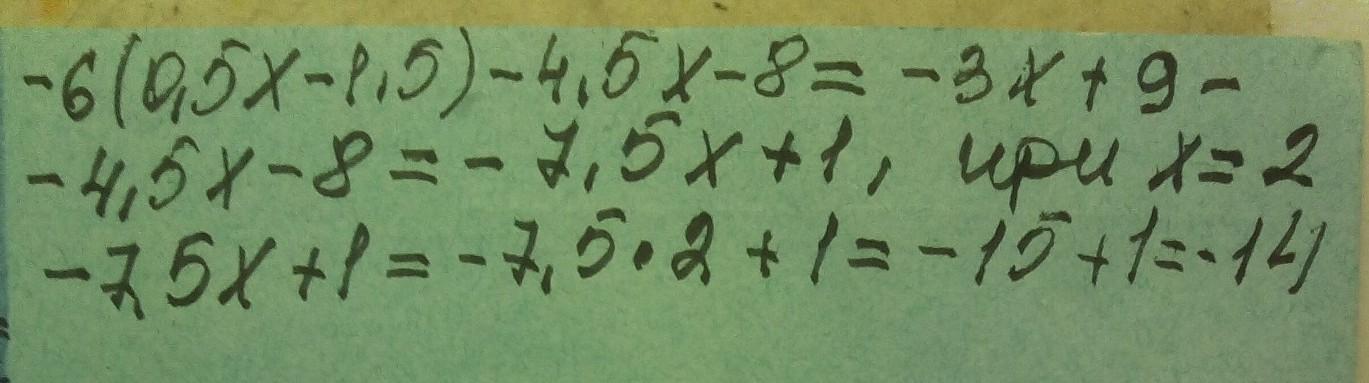 -6(0,5x-1,5)-4,5x-8= -3x+9-
-4,5x-8=-7,5x+1, при x=2
-7,5x+1=-7,5•2+1=-15+1=-14